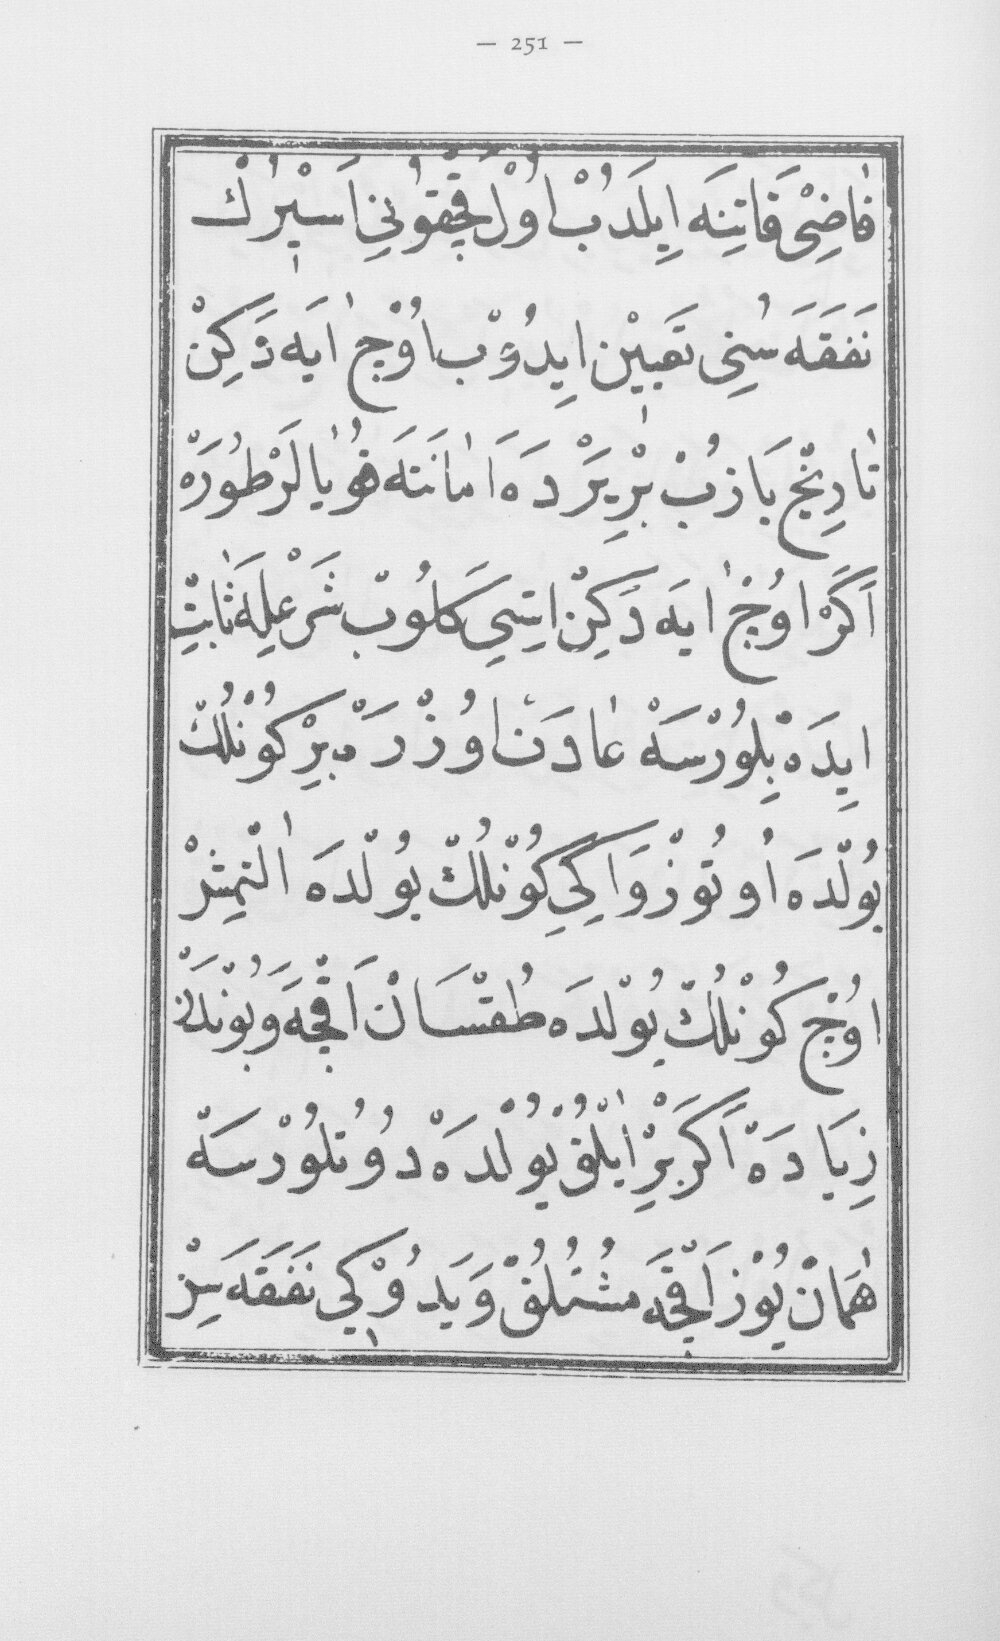 — 251 —
قَاضِى قَاتِنَه اِيلَدُبْ اُولْ قَچْقُونِ اَسِيرُكْ
نَفَقَه سُنِى تَعْيِيْن اِيدُوْبْ اُوْچْ اٰيَه دَكِنْ
تَارِيْخ يَازُبْ بِرْ يَرْدَه اَمَانَتَه قُويَالَرْ طُورَه
اَكَرْ اُوْچْ اٰيَه دَكِنْ اِتِسِى كَلُوبْ شَرْعِلَه ثَابِتْ
اِيدَه بِلُورْسَه عَادَتْ اُوزْرَه بِرْ كُونْلُكْ
يُولْدَه اُوتُوزْ وَ اِكِى كُونْلُكْ يُولْدَه اَلْتمِشْرْ
اُوْچْ كُونْلُكْ يُولْدَه طُقْسَانْ اَقْچَه وَ بُونْدَنْ
زِيَادَه اَكَرْ بِرْ اَيْلُقْ يُولْدَه دُوتُلُورْسَه
هَمَانْ يُوزْ اَقْچَه مُشْتُلُقْ وَ يَدُوكِى نَفَقَه سِزْ